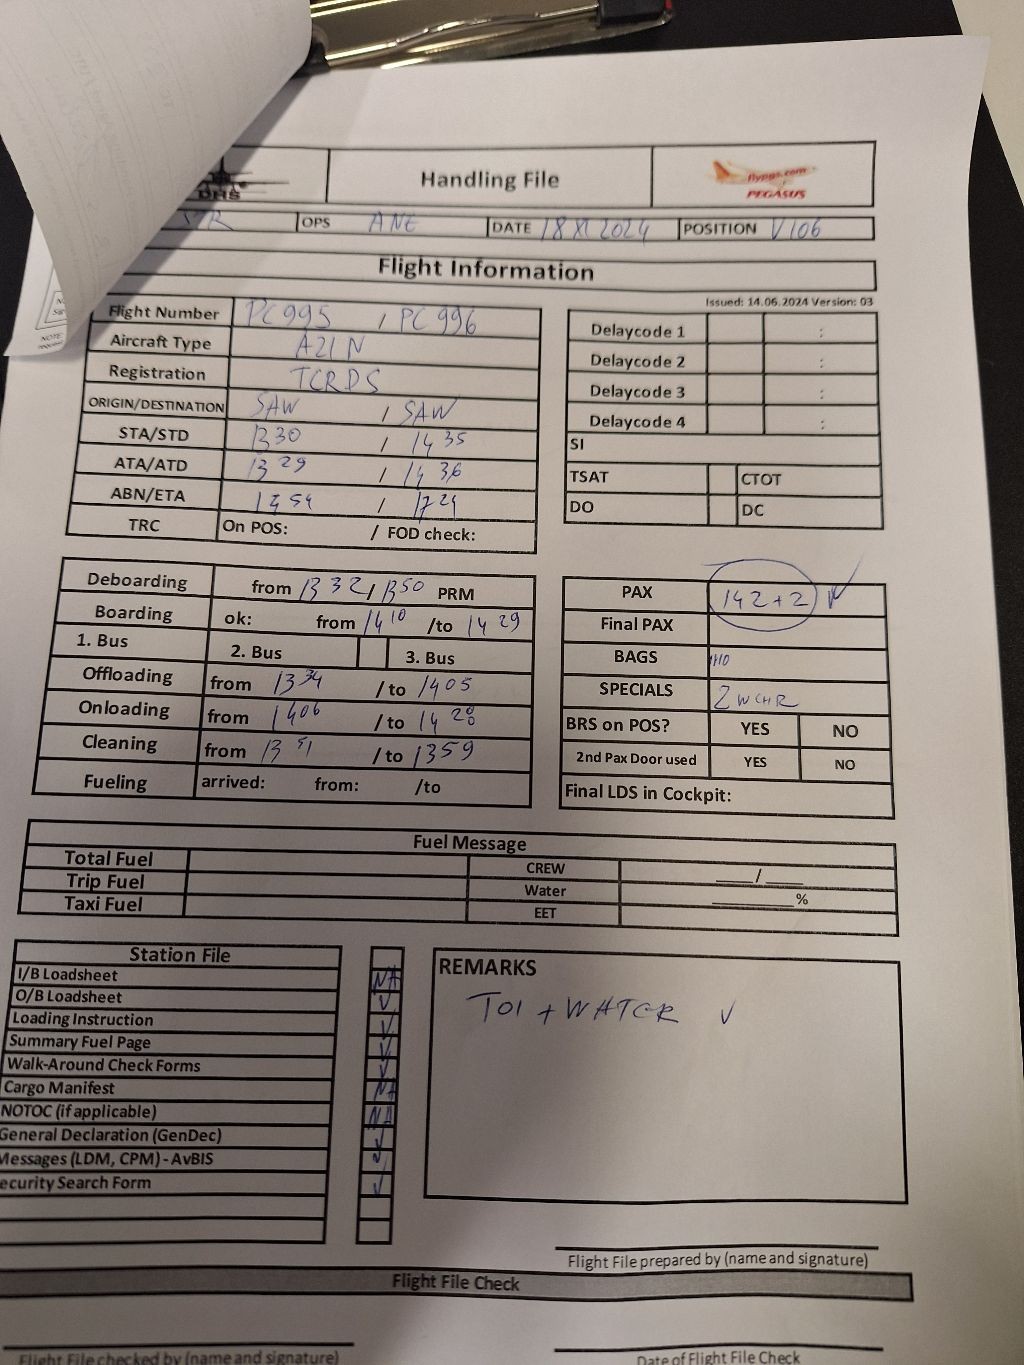 DHS
Handling File
flypgs.com
PEGASUS
STR OPS ANE DATE 18 XI 2024 POSITION V106
Flight Information
Issued: 14.06.2024 Version: 03
Flight Number PC995 / PC996
Aircraft Type A21N
Registration TCRDS
ORIGIN/DESTINATION SAW / SAW
STA/STD 1330 / 1435
ATA/ATD 1329 / 1436
ABN/ETA / 1724
TRC On POS: / FOD check:
Delaycode 1 :
Delaycode 2 :
Delaycode 3 :
Delaycode 4 :
SI
TSAT CTOT
DO DC
Deboarding from 1332 / 1350 PRM
Boarding ok: from 1410 /to 1429
1. Bus 2. Bus 3. Bus
Offloading from 1334 /to 1405
Onloading from 1406 /to 1420
Cleaning from 1351 /to 1359
Fueling arrived: from: /to
PAX 142+2
Final PAX
BAGS
SPECIALS 2 WCHR
BRS on POS? YES NO
2nd Pax Door used YES NO
Final LDS in Cockpit:
Fuel Message
Total Fuel CREW ____/____
Trip Fuel Water ________%
Taxi Fuel EET
Station File
I/B Loadsheet NA
O/B Loadsheet ✓
Loading Instruction ✓
Summary Fuel Page ✓
Walk-Around Check Forms ✓
Cargo Manifest NA
NOTOC (if applicable) NA
General Declaration (GenDec) ✓
Messages (LDM, CPM) - AvBIS ✓
ecurity Search Form ✓
REMARKS
TOI + WATER ✓
Flight File prepared by (name and signature)
Flight File Check
Flight File checked by (name and signature)
Date of Flight File Check